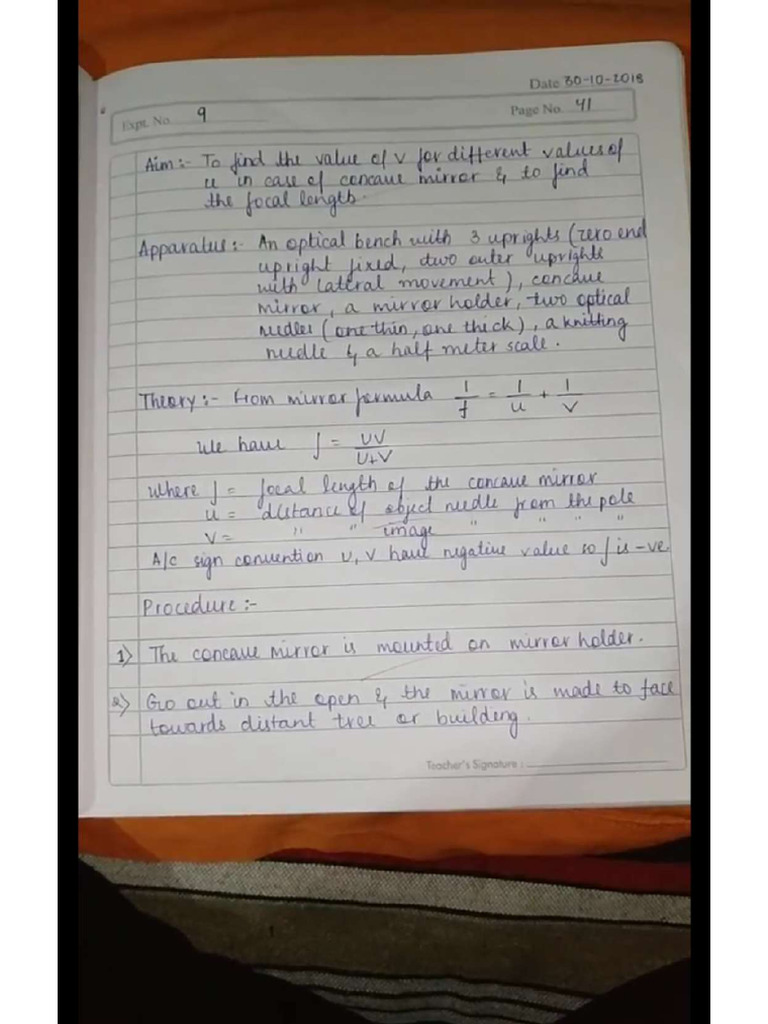 Date 30-10-2018
Expt. No. 9
Page No. 41
Aim :- To find the value of v for different values of
u in case of concave mirror & to find
the focal length.
Apparatus :- An optical bench with 3 uprights (zero end
upright fixed, two outer uprights
with lateral movement), concave
mirror, a mirror holder, two optical
needles (one thin, one thick), a knitting
needle & a half meter scale.
Theory :- From mirror formula 1/f = 1/u + 1/v
We have f = uv/u+v
Where f = focal length of the concave mirror
u = distance of object needle from the pole
v = " " image " " " "
A/c sign convention u, v have negative value so f is -ve
Procedure :-
1) The concave mirror is mounted on mirror holder.
2) Go out in the open & the mirror is made to face
towards distant tree or building.
Teacher's Signature :